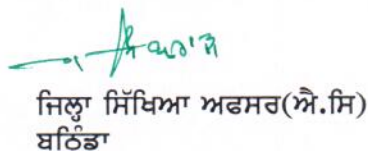 ਜਿਲ੍ਹਾ ਸਿੱਖਿਆ ਅਫਸਰ(ਐ.ਸਿ)
ਬਠਿੰਡਾ